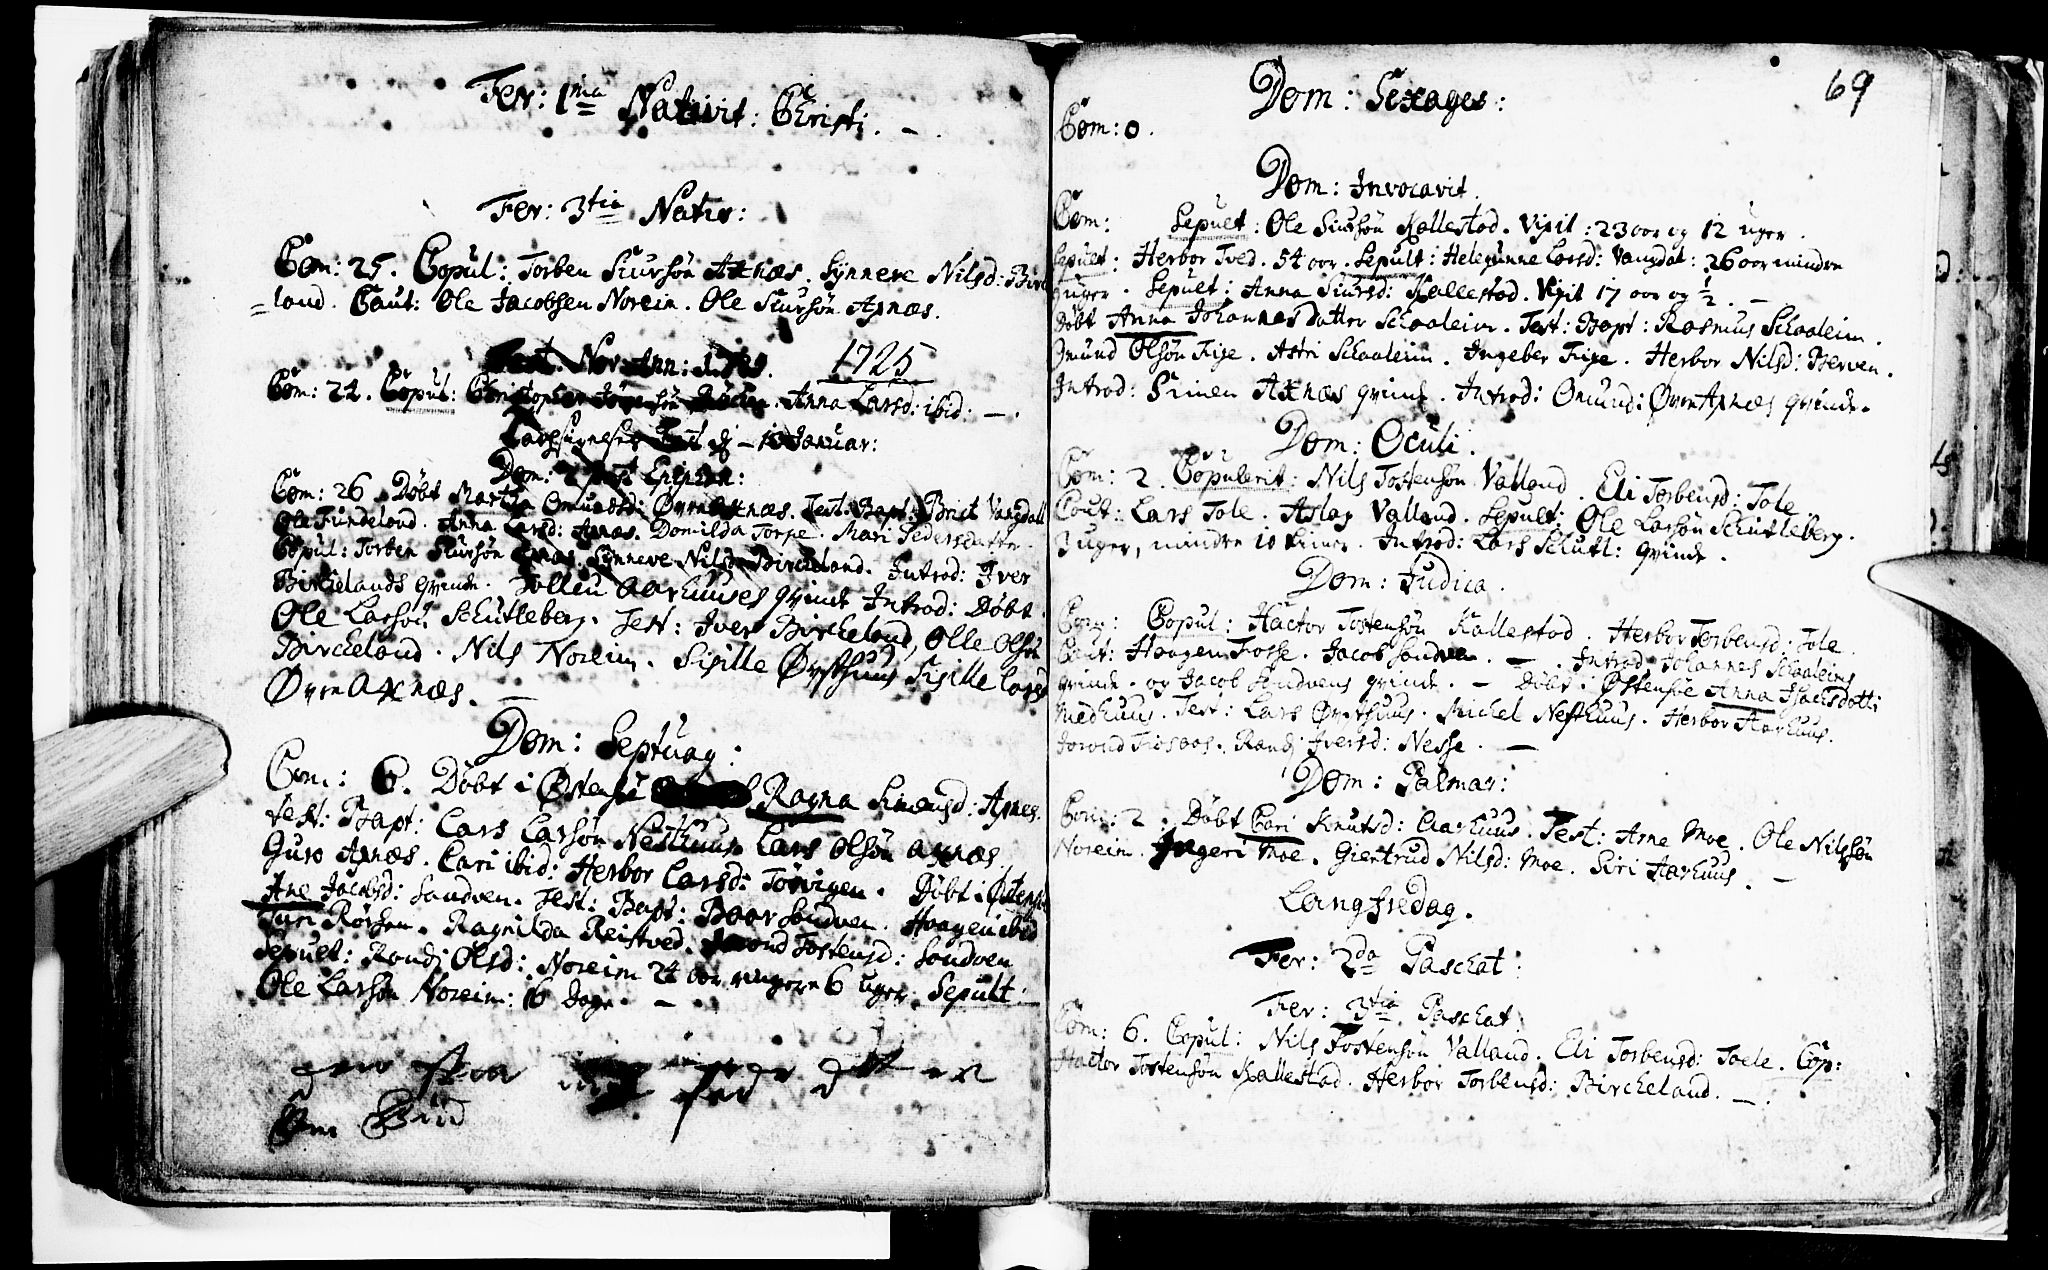 Fer: 1ma Nativit: Christi. –
Fer: 3tia Nativ:
Com: 25. Copul: Torben Siursøn Axnæs. Synneve Nilsd: Birc
=land. Caut: Ole Jacobsen Noreim. Ole Siursøn Axnæs.
Fest. Nov. Ann: 1725
Com: 24. Copul: Christopher Anna Larsd: ibid: –.
10 Januar:
Dom: 2 post Epiphan:
Com: 26. Døbt Martha Omundsd: Øvre Axnæs. Test. Bapt: Brict Vangdall
Ole Tundeland. Anna Larsd: Axnæs. Domilda Torpe. Mari Pedersdatter.
Copul: Torben Siursøn Axnæs. Synneve Nilsd: Birckeland. Introd: Iver
Birckelands qvinde. Tolleu Aarhuuses qvinde Introd: Døbt
Ole Larsøn Schutleberg. Test: Iver Birckeland, Olle Olsøn
Birckeland. Nils Noreim. Sisille Øysthuus Sisille Larsd
Øvre Axnæs. –
Dom: Septuag:
Com: 6. Døbt i Østensøe Ragna Simensd: Axnes.
test: Bapt: Lars Larsøn Nesthuus Lars Olsøn Axnæs.
Guro Axnæs. Cari ibid: Herbor Larsd: Torvigen. Døbt i Østensø
Ane Jacobsd: Sandven. Test: Bapt: Baar Sandven. Haagen ibid
Turi Rørhen. Ragnilda Reistved. Jorond Tostensd: Sandven
Sepult: Rondj Olsd: Noreim 24 aar ringere 6 uger. Sepult:
Ole Larsøn Noreim: 16 Dage. –
69
Dom: Sexages:
Com: 0.
Dom: Invocavit.
Com: Sepult: Ole Siursøn Kallestad. Vixit: 23 aar og 12 uger.
Sepult: Herbor Tved. 54 aar. Sepult: Helegunne Larsd: Vangdal: 26 aar mindre
3 uger. Sepult: Anna Siursd: Kallestad. Vixit 17 aar og ½. –
Døbt Anna Johannesdatter Schaaleim. Test: Bapt: Rasmus Schaaleim.
Omund Olsøn Fixe. Astri Schaaleim. Ingeber Fixe. Herbor Nilsd: Berven.
Introd: Simen Axnæs qvinde. Introd: Omund: Øvre Axnæs qvinde.
Dom: Oculi.
Com: 2. Copulerit: Nils Tostensøn Valland. Eli Torbensd: Tole
Caut: Lars Tole. Aslag Valland. Sepult: Ole Larsøn Schutleberg.
3 uger, mindre 10 timer. Introd: Lars Schutl: qvinde.
Dom: Judica.
Com: Copul: Hactor Tostensøn Kallestad. Herbor Torbensd: Tole.
Caut: Haagen Fosse. Jacob Sandven. –. Introd: Johannes Schaaleims
qvinde. og Jacob Sandvens qvinde. – Døbt i Østensøe Anna Isachsdotti
Medhuus. Test: Lars Øysthuus. Michel Nesthuus. Herbor Aarhuus.
Jorond Fiosaas. Randj Iversd: Nesse. –
Dom: Palmar:
Com: 2. Døbt Cari Knutsd: Aarhuus. Test: Arne Moe. Ole Nilsøn
Noreim. Ingeri Moe. Giertrud Nilsd: Moe. Siri Aarhuus. –
Langfredag.
Fer: 2da Paschat:
Fer: 3tia Paschat:
Com: 6. Copul: Nils Tostensøn Valland. Eli Torbensd: Toele. Cop:
Hactor Tostensøn Kallestad. Herbor Torbensd: Birckeland. –.